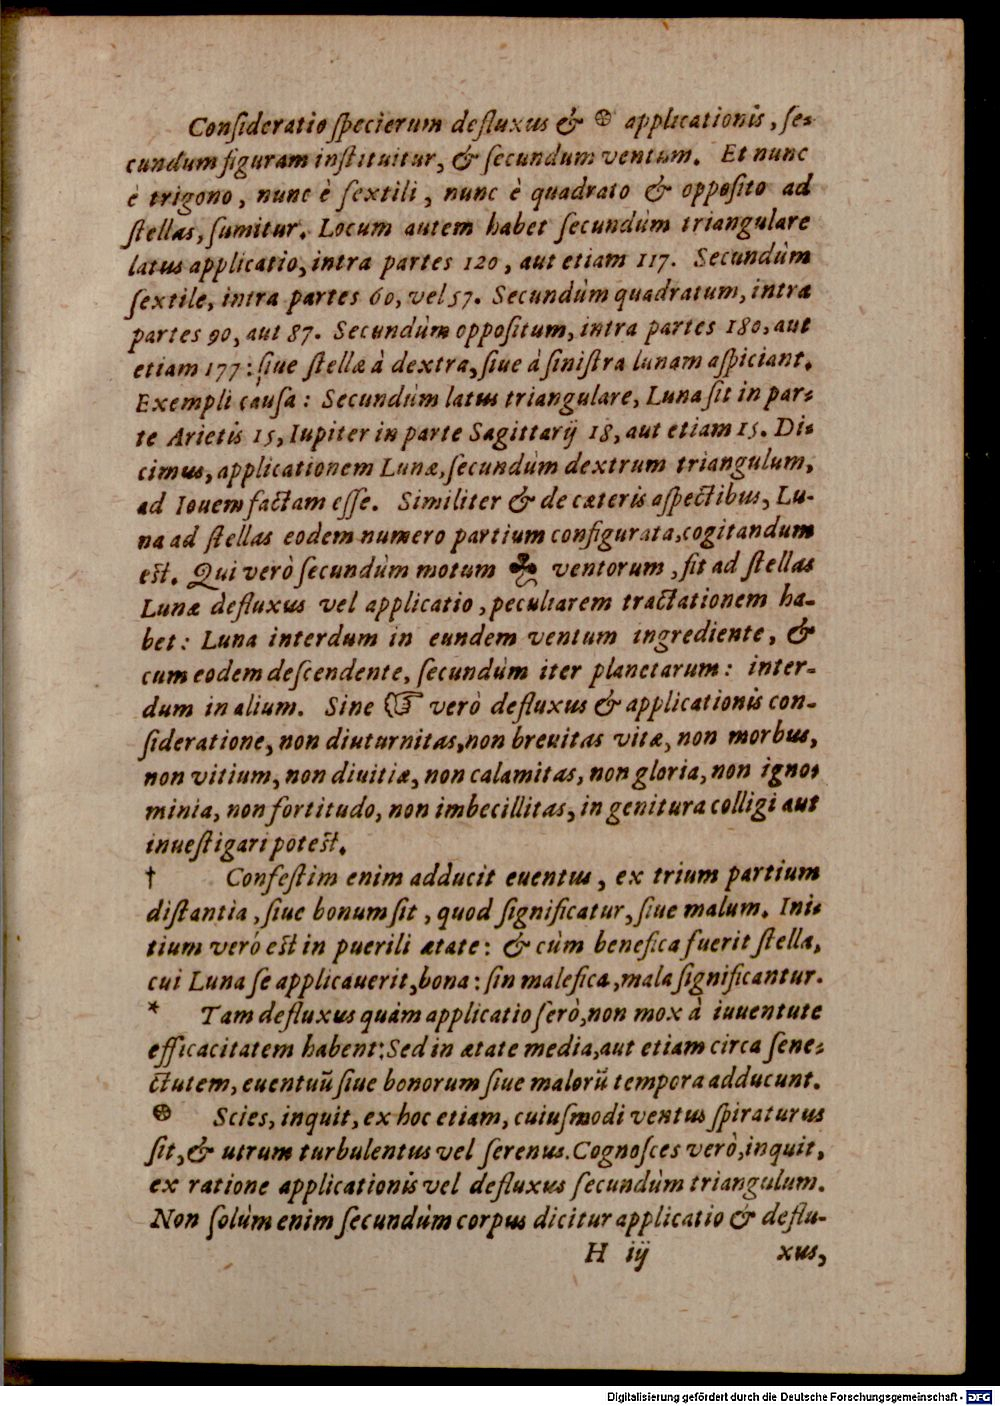 Conſideratio ſpecierum defluxus & ⊛ applicationis, ſe-
cundum figuram inſtituitur, & ſecundum ventum. Et nunc
è trigono, nunc è ſextili, nunc è quadrato & oppoſito ad
ſtellas, ſumitur. Locum autem habet ſecundùm triangulare
latus applicatio, intra partes 120, aut etiam 117. Secundùm
ſextile, intra partes 60, vel 57. Secundùm quadratum, intra
partes 90, aut 87. Secundùm oppoſitum, intra partes 180, aut
etiam 177: ſiue ſtellæ à dextra, ſiue à ſiniſtra lunam aſpiciant.
Exempli cauſa: Secundùm latus triangulare, Luna ſit in par-
te Arietis 15, Iupiter in parte Sagittarij 18, aut etiam 15. Di-
cimus, applicationem Lunæ, ſecundùm dextrum triangulum,
ad Iouem factam eſſe. Similiter & de cæteris aſpectibus, Lu-
na ad ſtellas eodem numero partium configurata, cogitandum
eſt. Qui verò ſecundùm motum ☘ ventorum, fit ad ſtellas
Lunæ defluxus vel applicatio, peculiarem tractationem ha-
bet: Luna interdum in eundem ventum ingrediente, &
cum eodem deſcendente, ſecundùm iter planetarum: inter-
dum in alium. Sine ☞ verò defluxus & applicationis con-
ſideratione, non diuturnitas, non breuitas vitæ, non morbus,
non vitium, non diuitiæ, non calamitas, non gloria, non igno-
minia, non fortitudo, non imbecillitas, in genitura colligi aut
inueſtigari poteſt.
† Confeſtim enim adducit euentus, ex trium partium
diſtantia, ſiue bonum ſit, quod ſignificatur, ſiue malum. Ini-
tium verò eſt in puerili ætate: & cùm benefica fuerit ſtella,
cui Luna ſe applicauerit, bona: ſin malefica, mala ſignificantur.
* Tam defluxus quàm applicatio ſerò, non mox à iuuentute
efficacitatem habent: Sed in ætate media, aut etiam circa ſene-
ctutem, euentuũ ſiue bonorum ſiue malorũ tempora adducunt.
⊛ Scies, inquit, ex hoc etiam, cuiuſmodi ventus ſpiraturus
ſit, & utrum turbulentus vel ſerenus. Cognoſces verò, inquit,
ex ratione applicationis vel defluxus ſecundùm triangulum.
Non ſolùm enim ſecundùm corpus dicitur applicatio & deflu-
H iij xus,
Digitalisierung gefördert durch die Deutsche Forschungsgemeinschaft - DFG